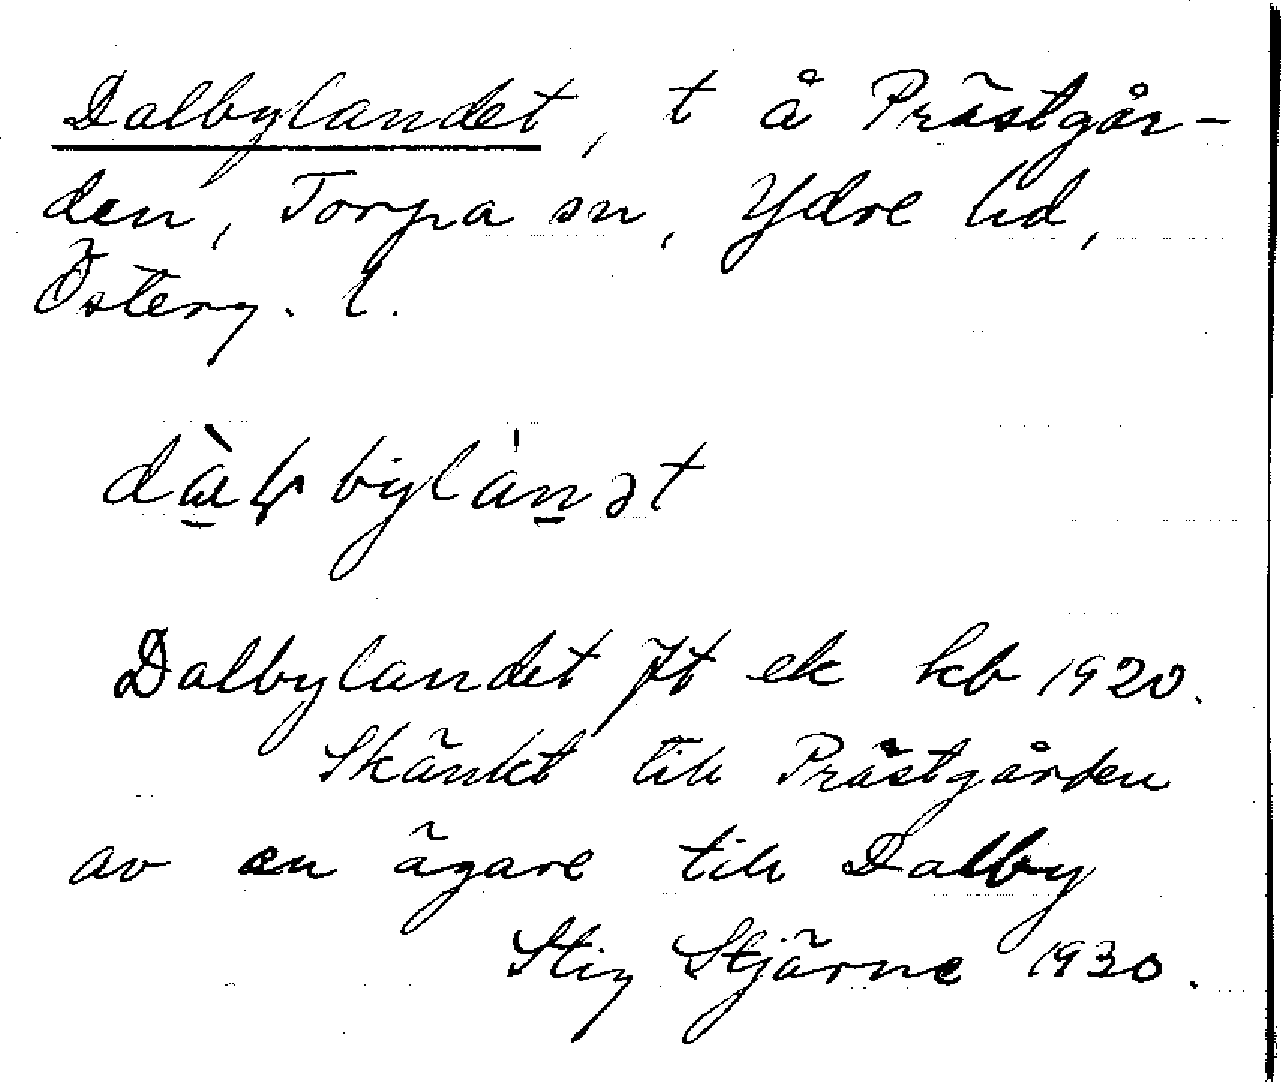 Dalbylandet, t å Prästgår-
den, Torpa sn, Ydre hd,
Österg. l.
Dalbylandet Jt ek kb 1920.
Skänkt till Prästgården
av en ägare till Dalby
Stig Stjärne 1930.